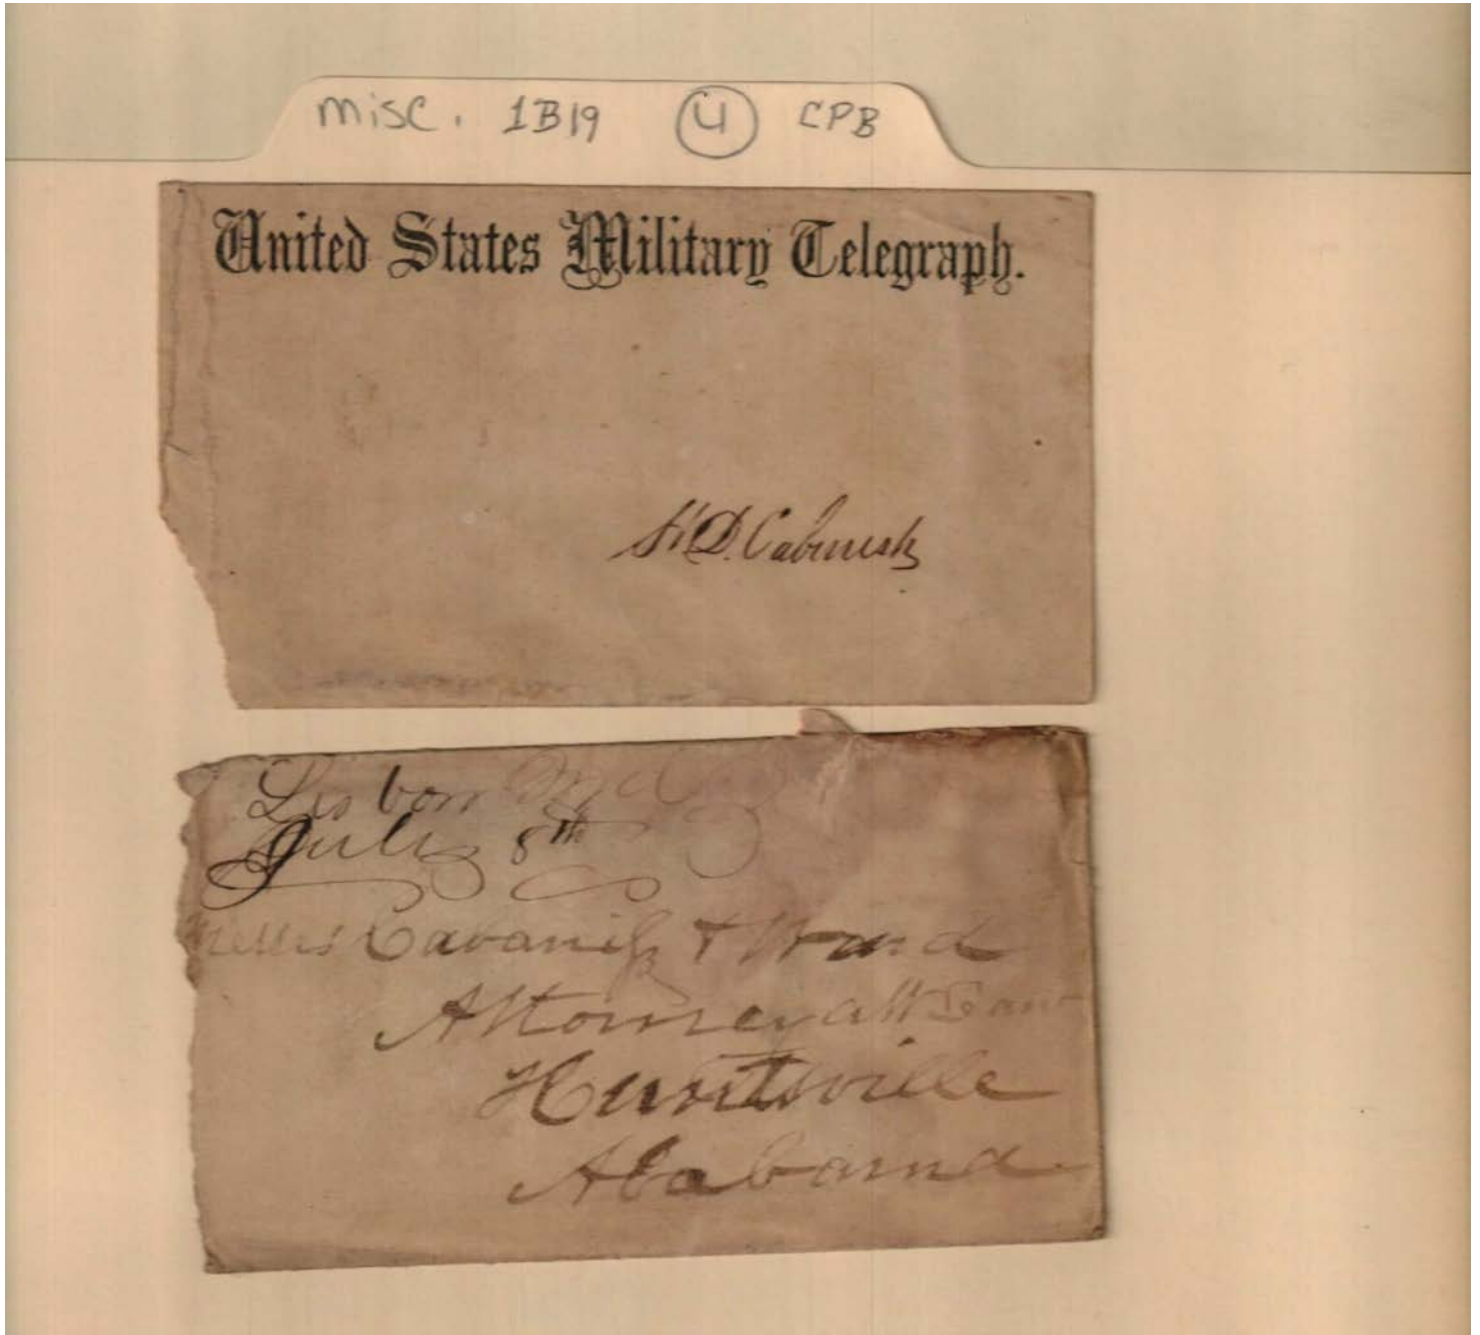 misc. 1B19 4 CPB
United States Military Telegraph.
D. Cabiness
Lisbon Md
July 8th
Cabaniss & Ward
Attorney att Law
Huntsville
Alabama